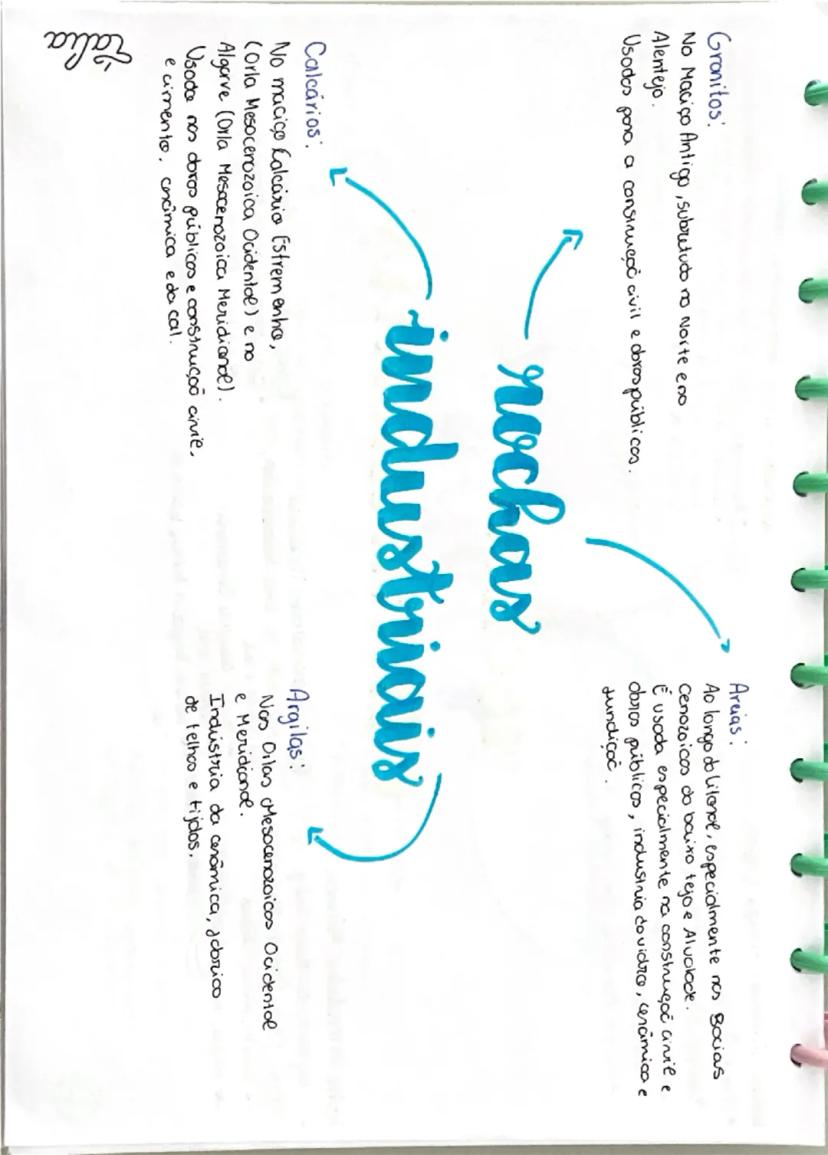 Granitos:
No Maciço Antigo, sobretudo no Norte e no
Alentejo.
Usados para a construção civil e obras públicas.
Areias:
Ao longo do litoral, especialmente nas Bacias
Cenozoicas do baixo tejo e Alvalade.
É usada especialmente na construção civil e
obras públicas, industria do vidro, cerâmica e
fundição.
rochas
industriais
Calcários:
No maciço Calcário Estremenho,
(Orla Mesocenozoica Ocidental) e no
Algarve (Orla Mesocenozoica Meridional).
Usada nas obras públicas e construção civil,
e cimento, cerâmica e da cal.
Argilas:
Nas Orlas Mesocenozoicas Ocidental
e Meridional.
Indústria da cerâmica, fabrico
de telhas e tijolos.